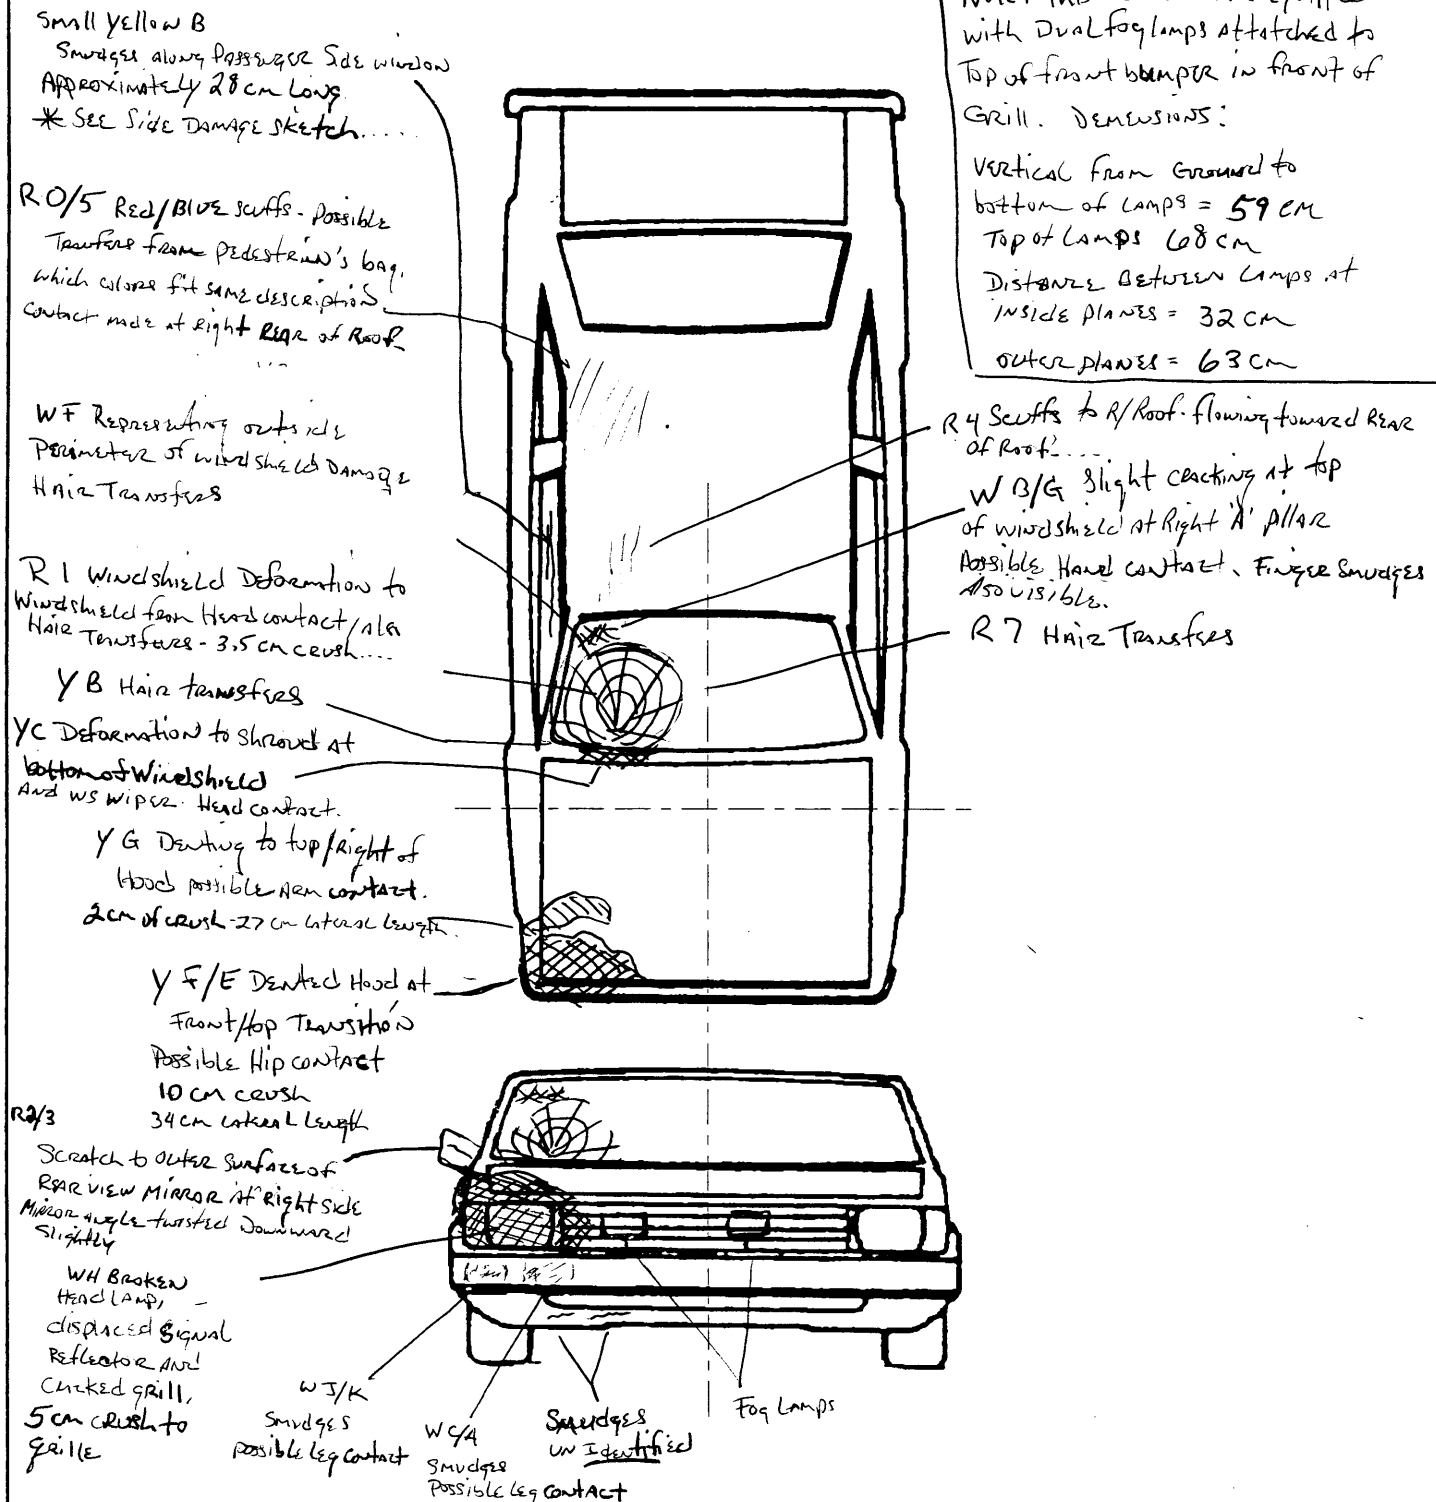 Small Yellow B
Smudges along Passenger Side window
Approximately 28 cm Long
* See Side Damage sketch.....
R O/5 Red/Blue scuffs - Possible
Tranfers from pedestrian's bag,
which colors fit same description
contact made at Right Rear of Roof
...
WF Representing outside
Perimeter of windshield Damage
Hair Transfers
R 1 Windshield Deformation to
Windshield from Head contact/also
Hair Transfers - 3.5 cm crush....
Y B Hair transfers
YC Deformation to Shroud at
bottom of Windshield
And WS Wiper. Head contact.
Y G Denting to top/Right of
Hood possible Arm contact.
2cm of crush - 27 cm Lateral Length
Y F/E Dented Hood at
Front/top Transition
Possible Hip contact
10 cm crush
34 cm Lateral Length
R2/3
Scratch to outer surface of
Rear view Mirror at Right side
Mirror angle twisted Downward
Slightly
WH Broken
Headlamp,
displaced signal
Reflector and
Cracked grill,
5 cm crush to
grille
W J/K
Smudges
possible leg contact
W C/A
Smudges
Possible Leg contact
Smudges
un Identified
Fog Lamps
with Dual foglamps attatched to
Top of front bumper in front of
Grill. Demensions:
Vertical from Ground to
bottom of Lamps = 59 cm
Top of Lamps 68 cm
Distance Between Lamps at
inside planes = 32 cm
outer planes = 63 cm
R 4 Scuffs to R/Roof - flowing toward Rear
of Roof.....
W B/G Slight cracking at top
of windshield at Right 'A' pillar
Possible Hand contact. Finger Smudges
Also visible.
R 7 Hair Transfers